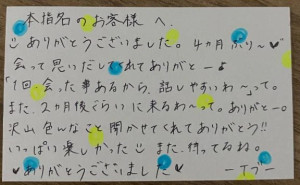 本指名のお客様へ
ありがとうございました。4ヵ月ぶり〜♥
会って思いだしてくれてありがとー♪
「1回会った事あるから、話しやすいわ〜」って。
また、2ヵ月後ぐらいに来るわ〜って。ありがとー。
沢山色んなこと聞かせてくれてありがとう!!
いっぱい楽しかった また、待ってるね。
♥ありがとうございました♥